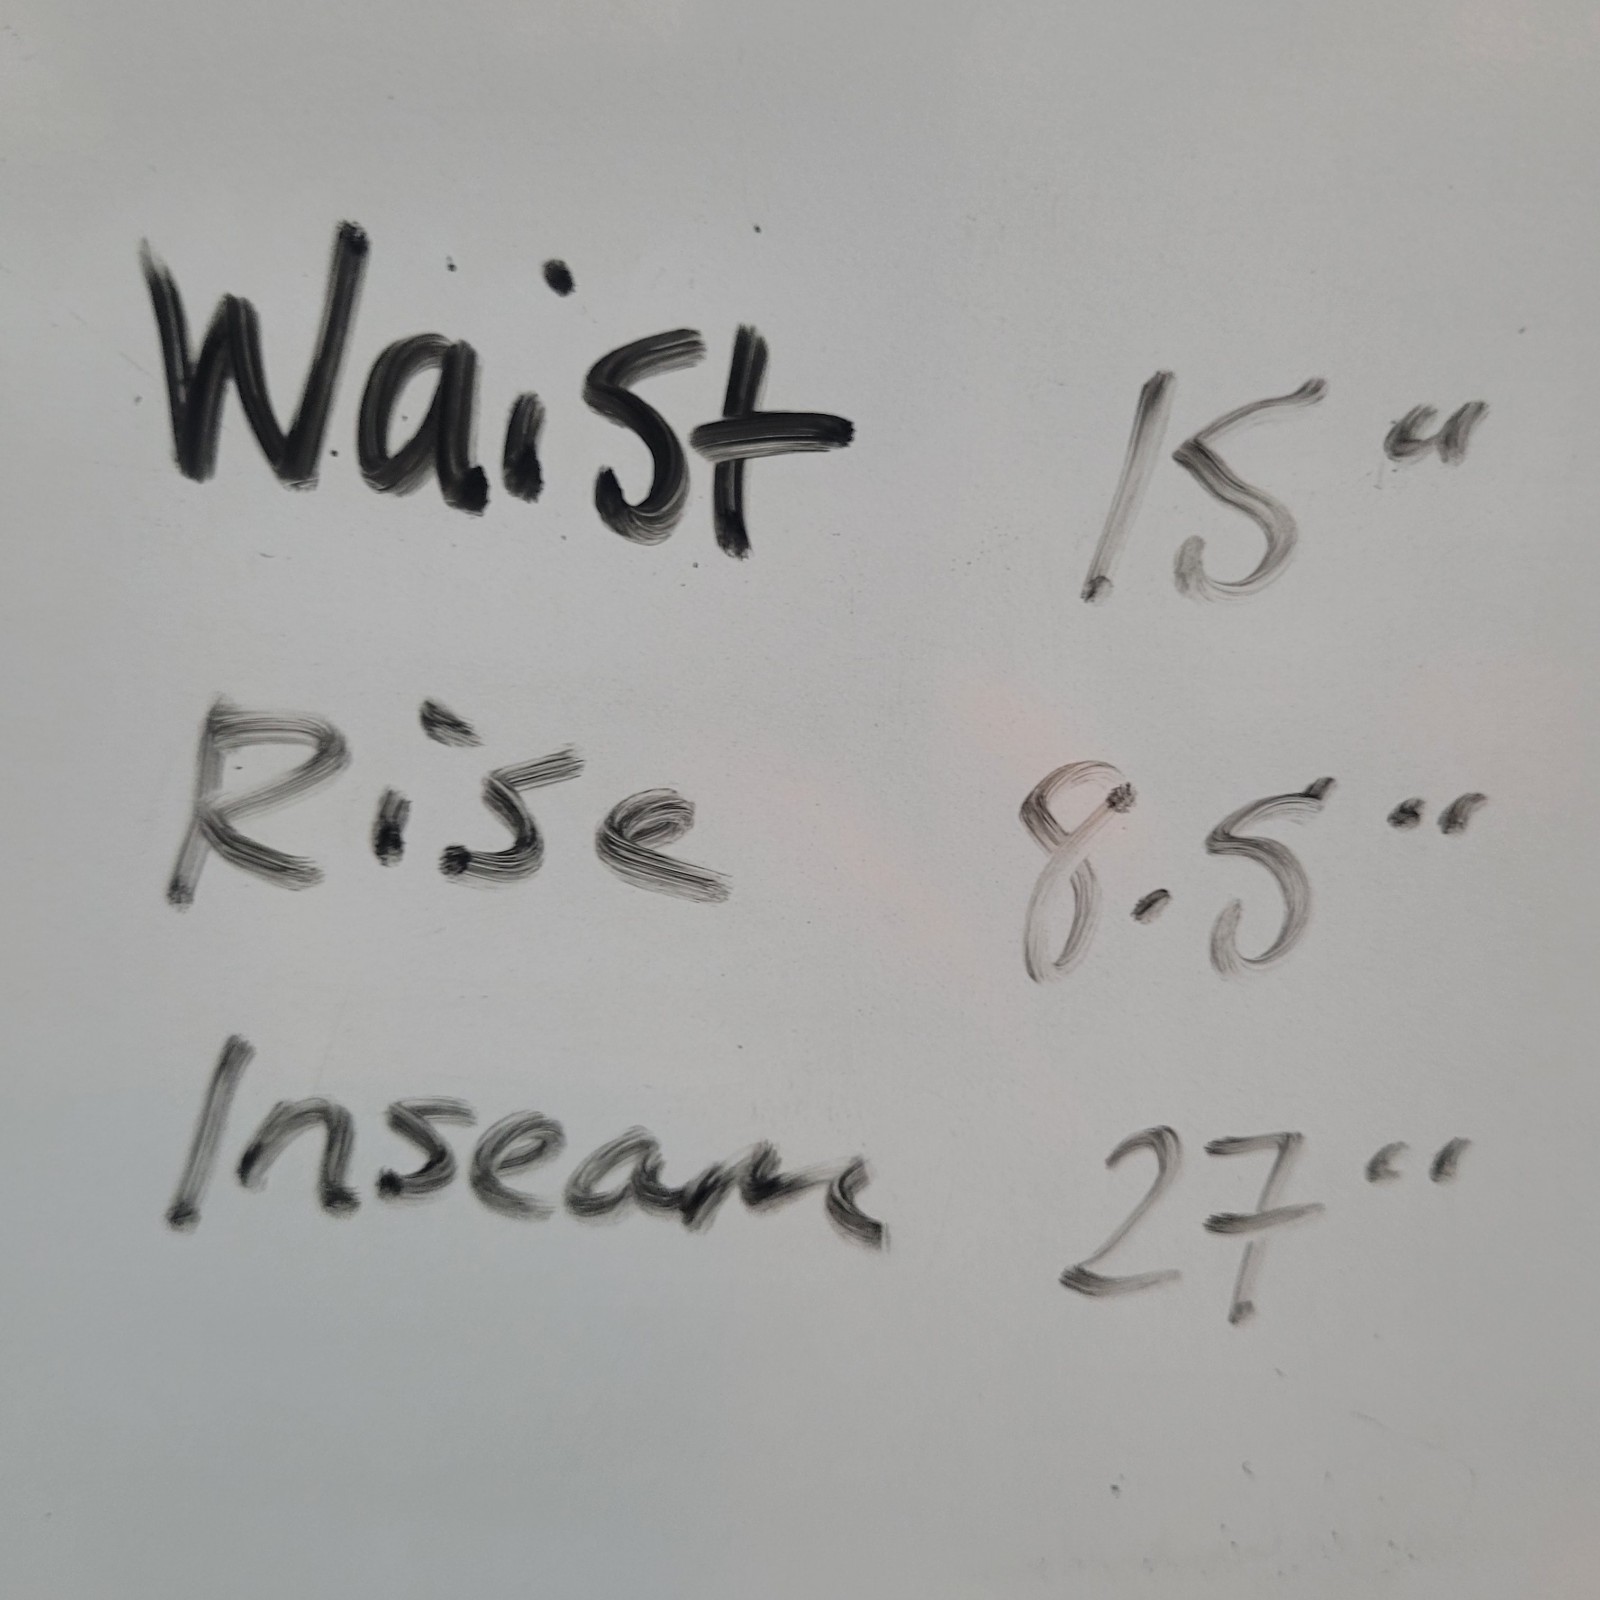 Waist 15"
Rise 8.5"
Inseam 27"